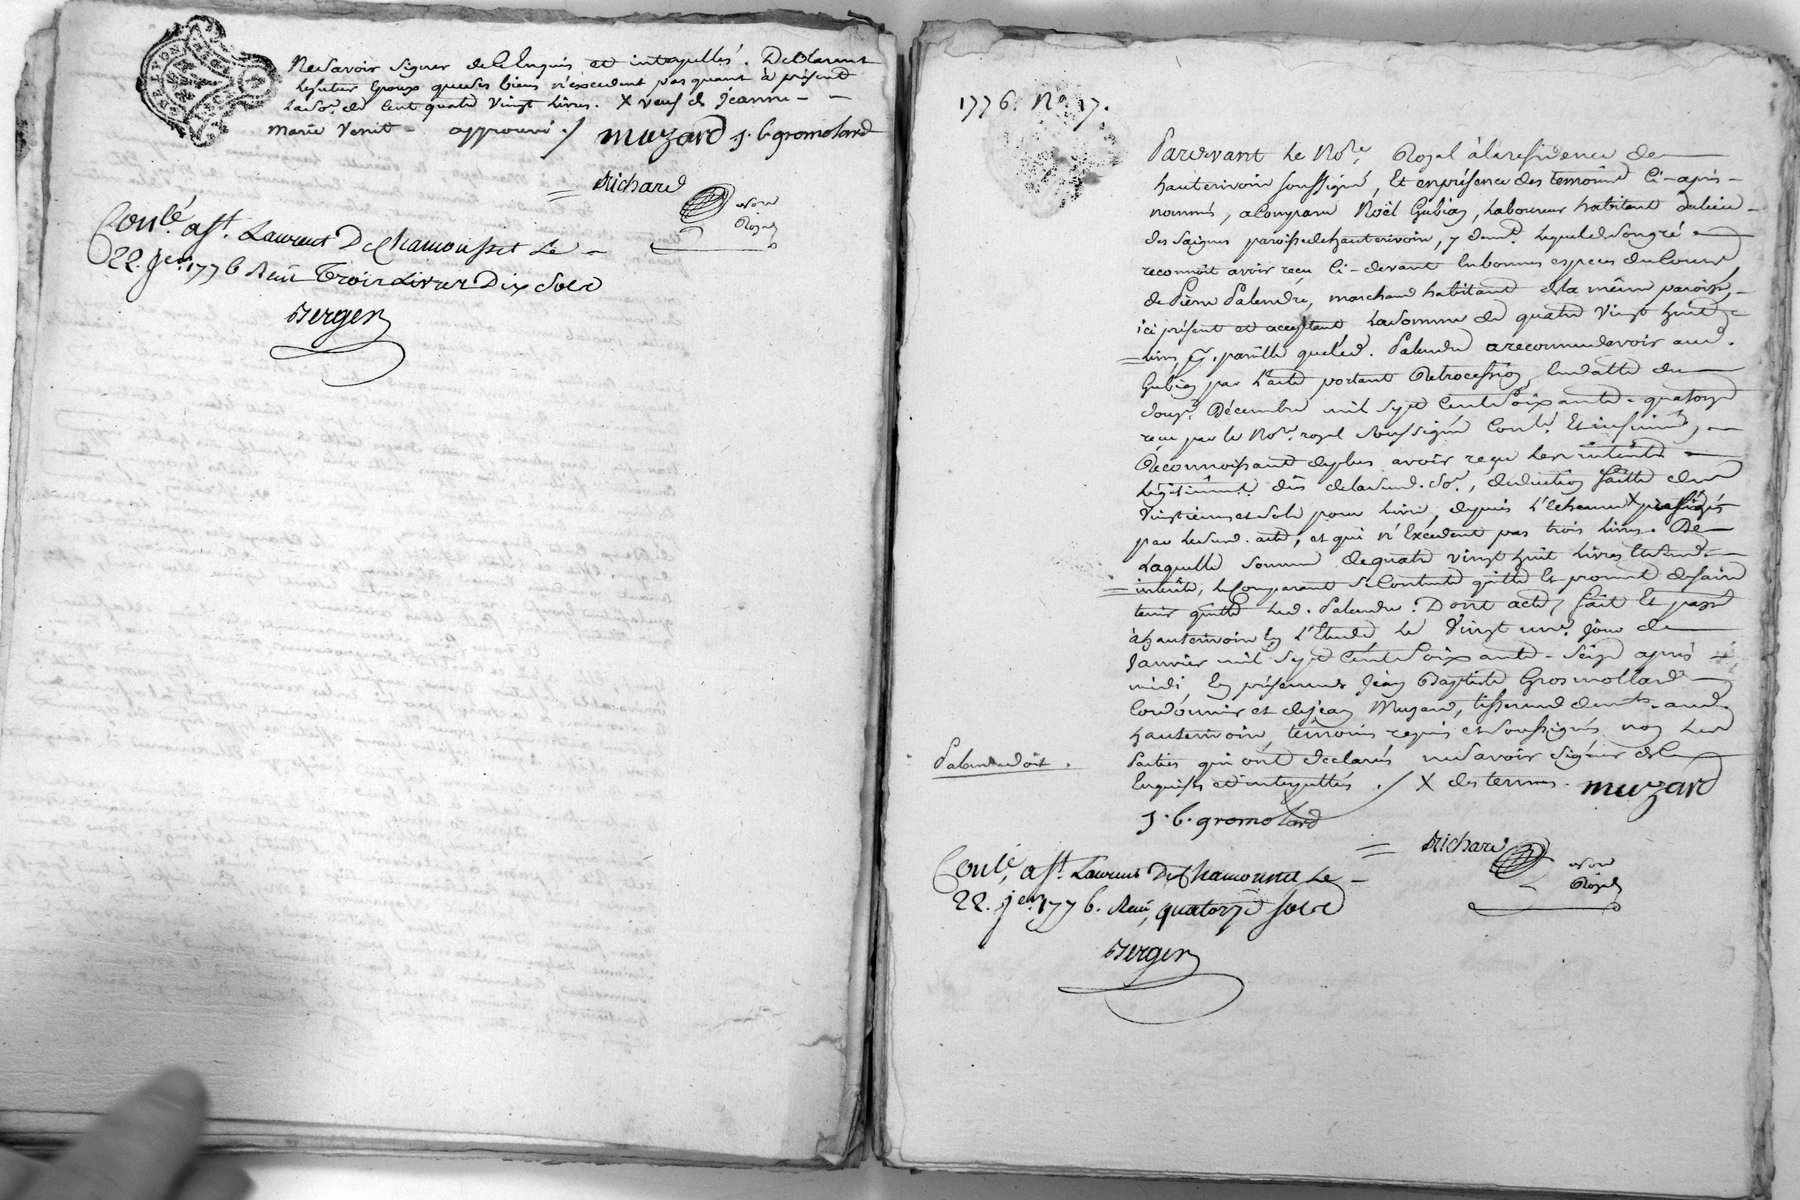 DE LYON
Ne savoir signer de ce Enquis et interpellés. Déclarant
le futur Epoux que ses biens n'éxcedent pas quant à présent
la so.e de Cent quatre Vingt Livres. X veuf de Jeanne -
Marie Verut - approuvé ./ muzard J. b. gromolard
Richard
nore
Royal
Conlé. a St. Laurent De Chamousset Le -
22. Jer. 1776 Reçu Trois Livres Dix Sols
Berger
1776. No. 17.
Pardevant Le No.re Royal à la residence de
hauterivoire soussigné, Et en présence des temoins Ci-après -
nommés, a Comparu Noël Gubian, Laboureur habitant du lieu -
des Saignes paroisse de hauterivoire, y dem.t Lequel de son gré
reconnoit avoir reçu Ci-devant En bonnes especes du Cours
de Pierre Palandre, marchand habitant de la même paroisse,
ici présent et acceptant La somme de quatre Vingt huit
Livres, pareille que led. Palandre a reconnu devoir aud.
Gubian par L'acte portant Retrocession, En datte du
douze Décembre mil sept Cent soixante-quatorze
reçu par le No.re royal soussigné Conlé. Et insinué,
Reconnoissant de plus avoir reçu Les intérêts
Légitimement dûs de lad. So.e, déduction faitte des
Vingtiemes et sols pour Livre, depuis L'echeance X
par Led. acte, et qui n'Excedent pas trois Livres. De
Laquelle somme de quatre vingt huit Livres Et desd.
intérêts, le Comparant se Contente quitte Et promet de faire
tenir quitte Led. Palandre. Dont acte, fait Et passé
à hauterivoire En L'Etude Le Vingt une. Jour de
Janvier mil Sept Cent Soixante-Seize après
midi, En présence de Jean Baptiste Grosmollard
Cordonnier et de Jean Muzard, tisserand dem.ts aud.
hauterivoire, témoins requis et soussignés non Les
Parties qui ont declarés ne savoir signer de ce
Enquises et interpellées ./ X des termes. muzard
Palandre doit.
J. b. gromolard
Richard
nore
Royal
Conlé, a St. Laurent De Chamousset Le -
22. Jer. 1776. Reçu, quatorze sols
Berger